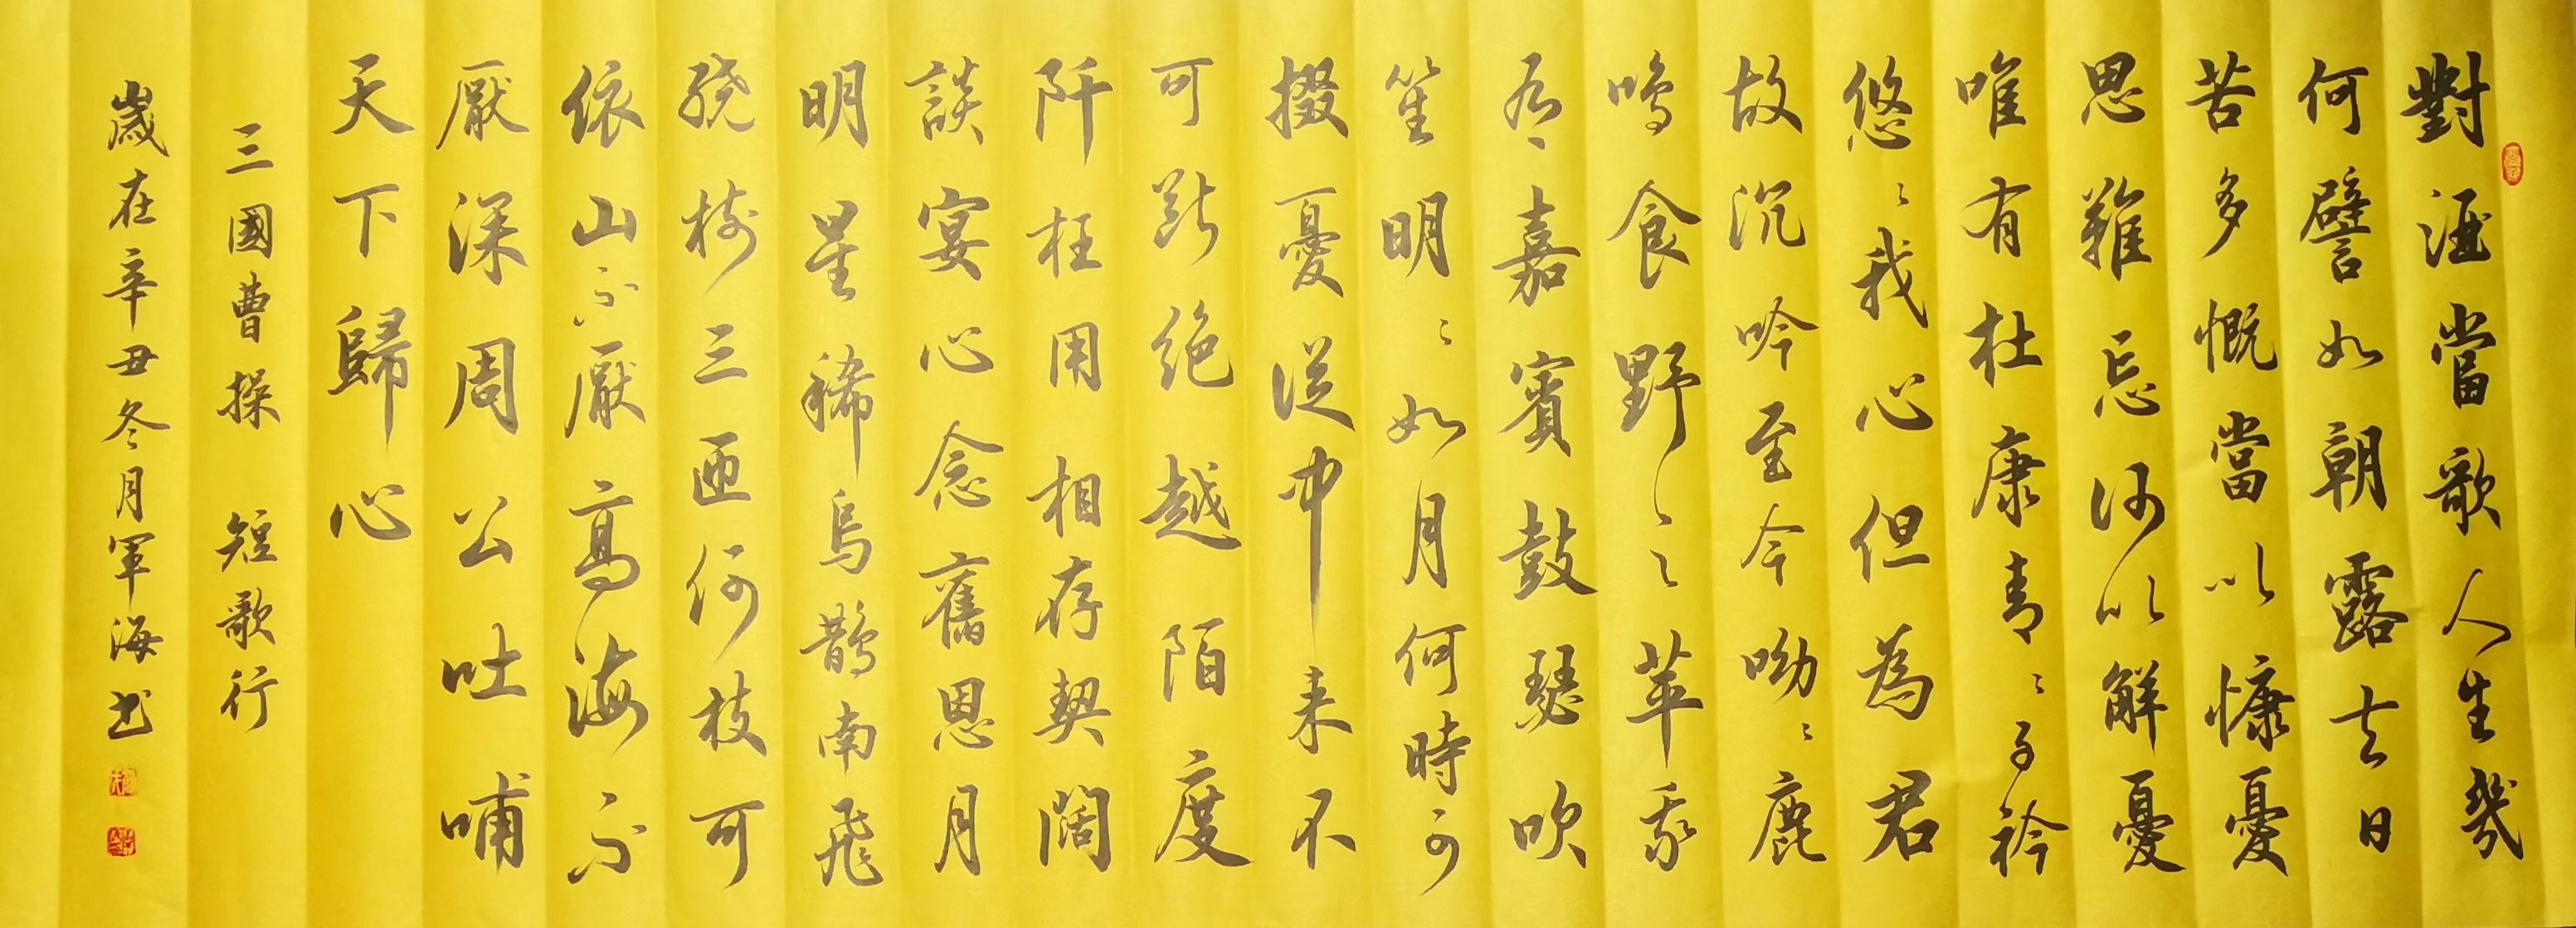 對酒當歌人生幾
何譬如朝露去日
苦多慨當以慷憂
思難忘何以解憂
唯有杜康青〻子衿
悠〻我心但為君
故沉吟至今呦〻鹿
鳴食野之苹我
有嘉賓鼓瑟吹
笙明〻如月何時可
掇憂從中来不
可斷絕越陌度
阡枉用相存契闊
談宴心念舊恩月
明星稀烏鵲南飛
繞樹三匝何枝可
依山不厭高海不
厭深周公吐哺
天下歸心
三國曹操 短歌行
歲在辛丑冬月軍海书